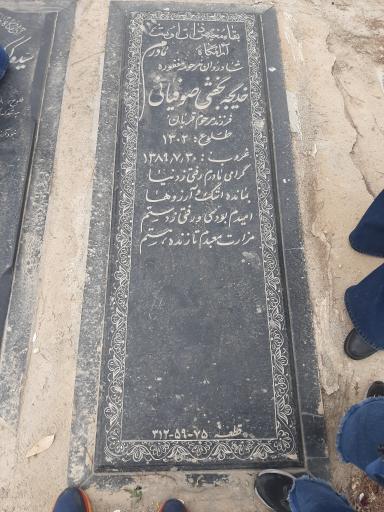 بقا مختص ذات اوست
آرامگاه مادر
شادروان مرحومه مغفوره
خدیجه بخشی صوفیانی
فرزند مرحوم قربان
طلوع: ۱۳۰۲
غروب: ۱۳۸۹٫۷٫۳۰
گرامی مادرم رفتی ز دنیا
بمانده اشک و آرزوها
امیدم بودی و رفتی ز دستم
مزارت معبدم تا زنده هستم
قطعه ۷۵-۵۹-۳۱۲
سید